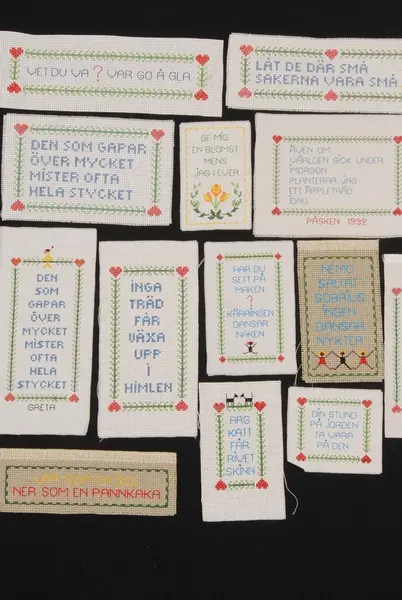 VET DU VA ? VAR GO Å GLA
LÅT DE DÄR SMÅ
SAKERNA VARA SMÅ
DEN SOM GAPAR
ÖVER MYCKET
MISTER OFTA
HELA STYCKET
GE MIG
EN BLOMST-
MENS
JAG LEVER
ÄVEN OM
VÄRLDEN GICK UNDER
MORGON
PLANTERAR JAG
ETT ÄPPLETRÄD
IDAG
PÅSKEN 1992
DEN
SOM
GAPAR
ÖVER
MYCKET
MISTER
OFTA
HELA
STYCKET
GRETA
INGA
TRÄD
FÅR
VÄXA
UPP
I
HIMLEN
HAR DU
SETT PÅ
MAKEN
?
KÄRRINGEN
DANSAR
NAKEN
NEMO
SALTAT
SOBRIUS
INGEN
DANSAR
NYKTER
ARG
KATT
FÅR
RIVET
SKINN
DIN STUND
PÅ JORDEN
TA VARA
PÅ DEN
NER SOM EN PANNKAKA